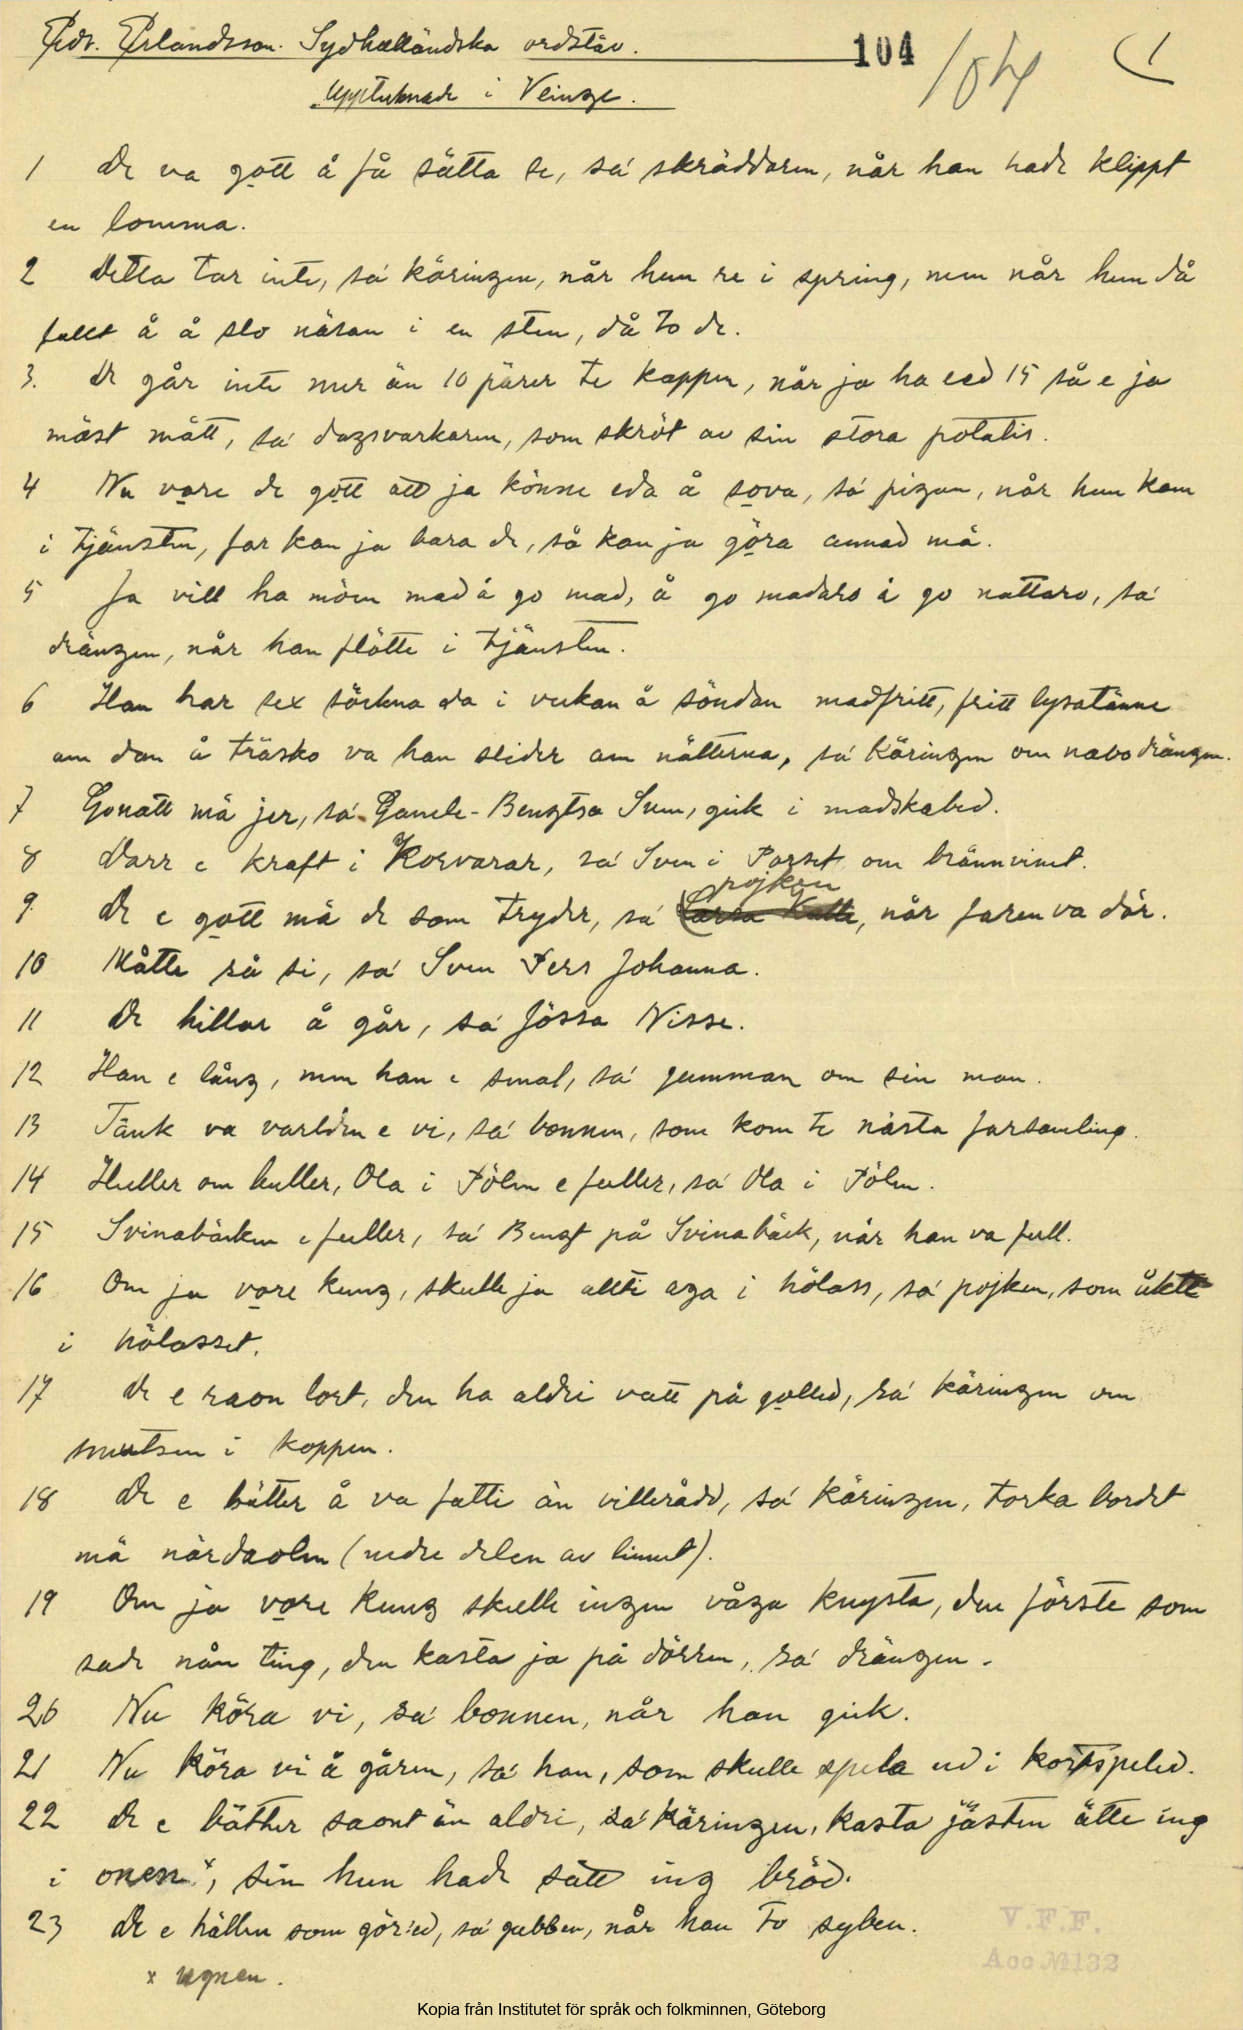 Edv. Erlandsson. Sydhalländska ordstäv. 104 104 1
Upptecknade i Veinge.
1 De va gott å få sätta se, sa' skräddaren, når han hade klippt
en lomma.
2 Detta tar inte, sa' käringen, når hun re i spring, men når hun då
fullt å å slo näsan i en sten, då to de.
3. De går inte mer än 10 pärer te koppen, når ja ha eed 15 så e ja
mäst mått, sa' dagsvarkaren, som skröt av sin stora potatis.
4 Nu vore de gott att ja könne eda å sova, sa' pigan, når hun kom
i tjänsten, far kan ja bara de, så kan ja göra annad må.
5 Ja vill ha möen mad å go mad, å go madaro å go nattaro, sa'
drängen, når han flötte i tjänsten.
6 Han har sex söckna da i veckan å söndan madfritt, fritt lysatänne
om dan å träsko va han slider om nätterna, sa' käringen om nabodrängen.
7 Gonatt må jer, sa' Gamle-Bengtsa Sven, gick i madskabed.
8 Darr e kraft i Korvarar, sa' Sven i Porset om brännvinet.
9 De e gott må de som tryder, sa' pojken, når faren va dör.
10 Måtte så si, sa' Sven Pers Johanna.
11 De hillar å går, sa' Jössa Nisse.
12 Han e lång, men han e smal, sa' gumman om sin man.
13 Tänk va varlden e vi, sa' bonnen, som kom te nästa farsamling.
14 Huller om buller, Ola i Pölen e fuller, sa' Ola i Pölen.
15 Svinabäcken e fuller, sa' Bengt på Svinabäck, når han va full.
16 Om ja vore kung, skulle ja allti aga i hölass, sa' pojken, som åkte
i hölasset.
17 De e raon lort, den ha aldri vatt på golled, sa' käringen om
smutsen i koppen.
18 De e bätter å va fatti än villerådd, sa' käringen, torka bordet
må närdaolen (nedre delen av linnet).
19 Om ja vore kung skulle ingen våga knysta, den förste som
sade nån ting, den kasta ja på dörren, sa' drängen.
20 Nu köra vi, sa' bonnen, når han gick.
21 Nu köra vi å gåren, sa' han, som skulle spela ud i kortspeled.
22 De e bätter saont än aldri, sa' käringen, kasta jästen ätte ing
i onen x, sin hun hade sått ing bröd.
23 De e hällen som gör'ed, sa' gubben, når han to syben.
x ugnen.
V.F.F.
Acc № 132
Kopia från Institutet för språk och folkminnen, Göteborg